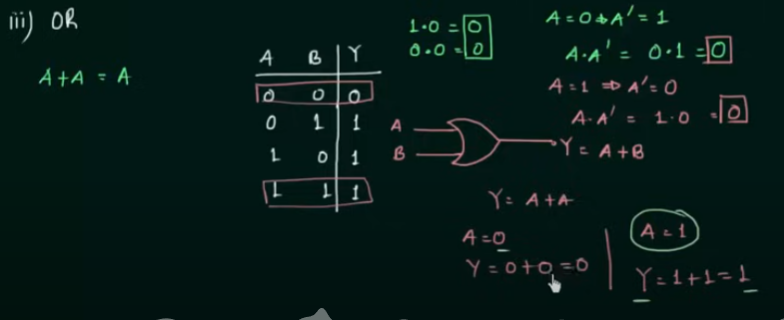 iii) OR
A+A = A
A B Y
0 0 0
0 1 1
1 0 1
1 1 1
1·0 = 0
0·0 = 0
A=0 ⇒ A' = 1
A·A' = 0·1 = 0
A=1 ⇒ A'=0
A·A' = 1·0 = 0
A
B
Y = A+B
Y = A+A
A=0
Y = 0+0=0
A=1
Y=1+1=1